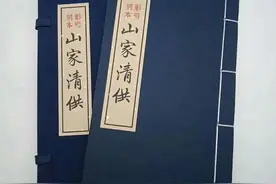 影印
明本
山家清供
影印
明本
山家清供